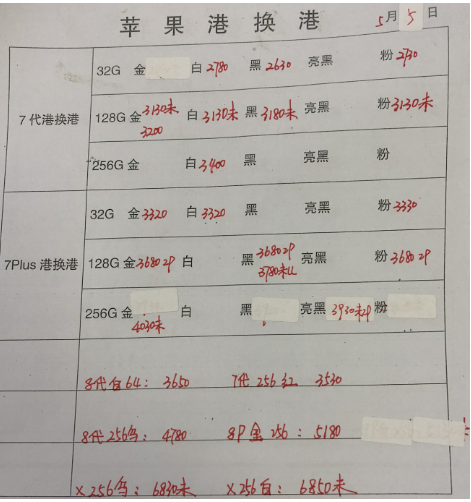 苹果港换港
5月5日
32G 金 白2780 黑2630 亮黑 粉2730
7代港换港 128G 金3130未 3200 白3130未 黑3180未 亮黑 粉3130未
256G 金 白3400 黑 亮黑 粉
32G 金3320 白3320 黑 亮黑 粉3330
7Plus港换港 128G 金3680 2P 白 黑3680 2P 3780未 亮黑 粉3680 2P
256G 金4030未 白 黑 亮黑3930未2P 粉
8代白64：3650 7代256红 3530
8代256乌：4780 8P金256：5180
X256乌：6830未 X256白：6850未